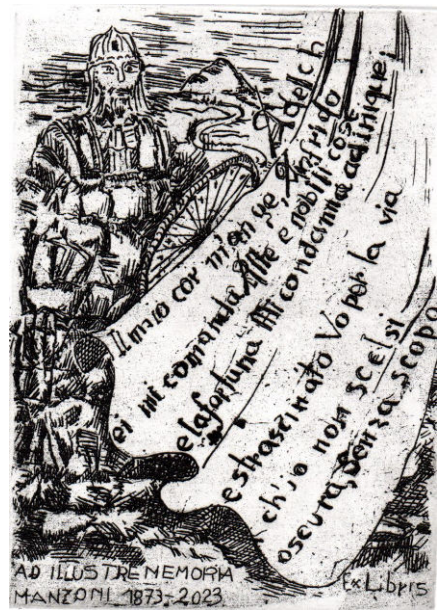 Il mio cor m'ange Anfrido
ei mi comanda Alte e nobili cose
e la fortuna Mi condanna ad inique;
e strascinato Vo per la via
ch'io non scelsi
oscura, senza scopo
Adelch
AD ILLUSTRE MEMORIA
MANZONI 1873-2023
Ex Libris